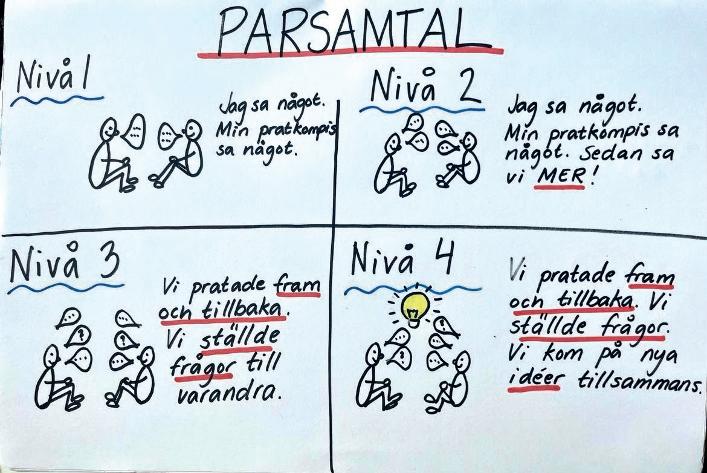 PARSAMTAL
Nivå 1
Jag sa något.
Min pratkompis
sa något.
Nivå 2
Jag sa något.
Min pratkompis sa
något. Sedan sa
vi MER!
Nivå 3
Vi pratade fram
och tillbaka.
Vi ställde
frågor till
varandra.
Nivå 4
Vi pratade fram
och tillbaka. Vi
ställde frågor.
Vi kom på nya
idéer tillsammans.